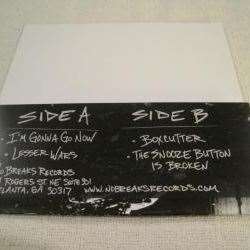 SIDE A
- I'm GONNA GO NOW
- LESSER WARS
SIDE B
- BOXCUTTER
- THE SNOOZE BUTTON
IS BROKEN
O BREAKS RECORDS
ROGERS ST NE
TLANTA, GA 30317
WWW.NOBREAKSRECORDS.COM